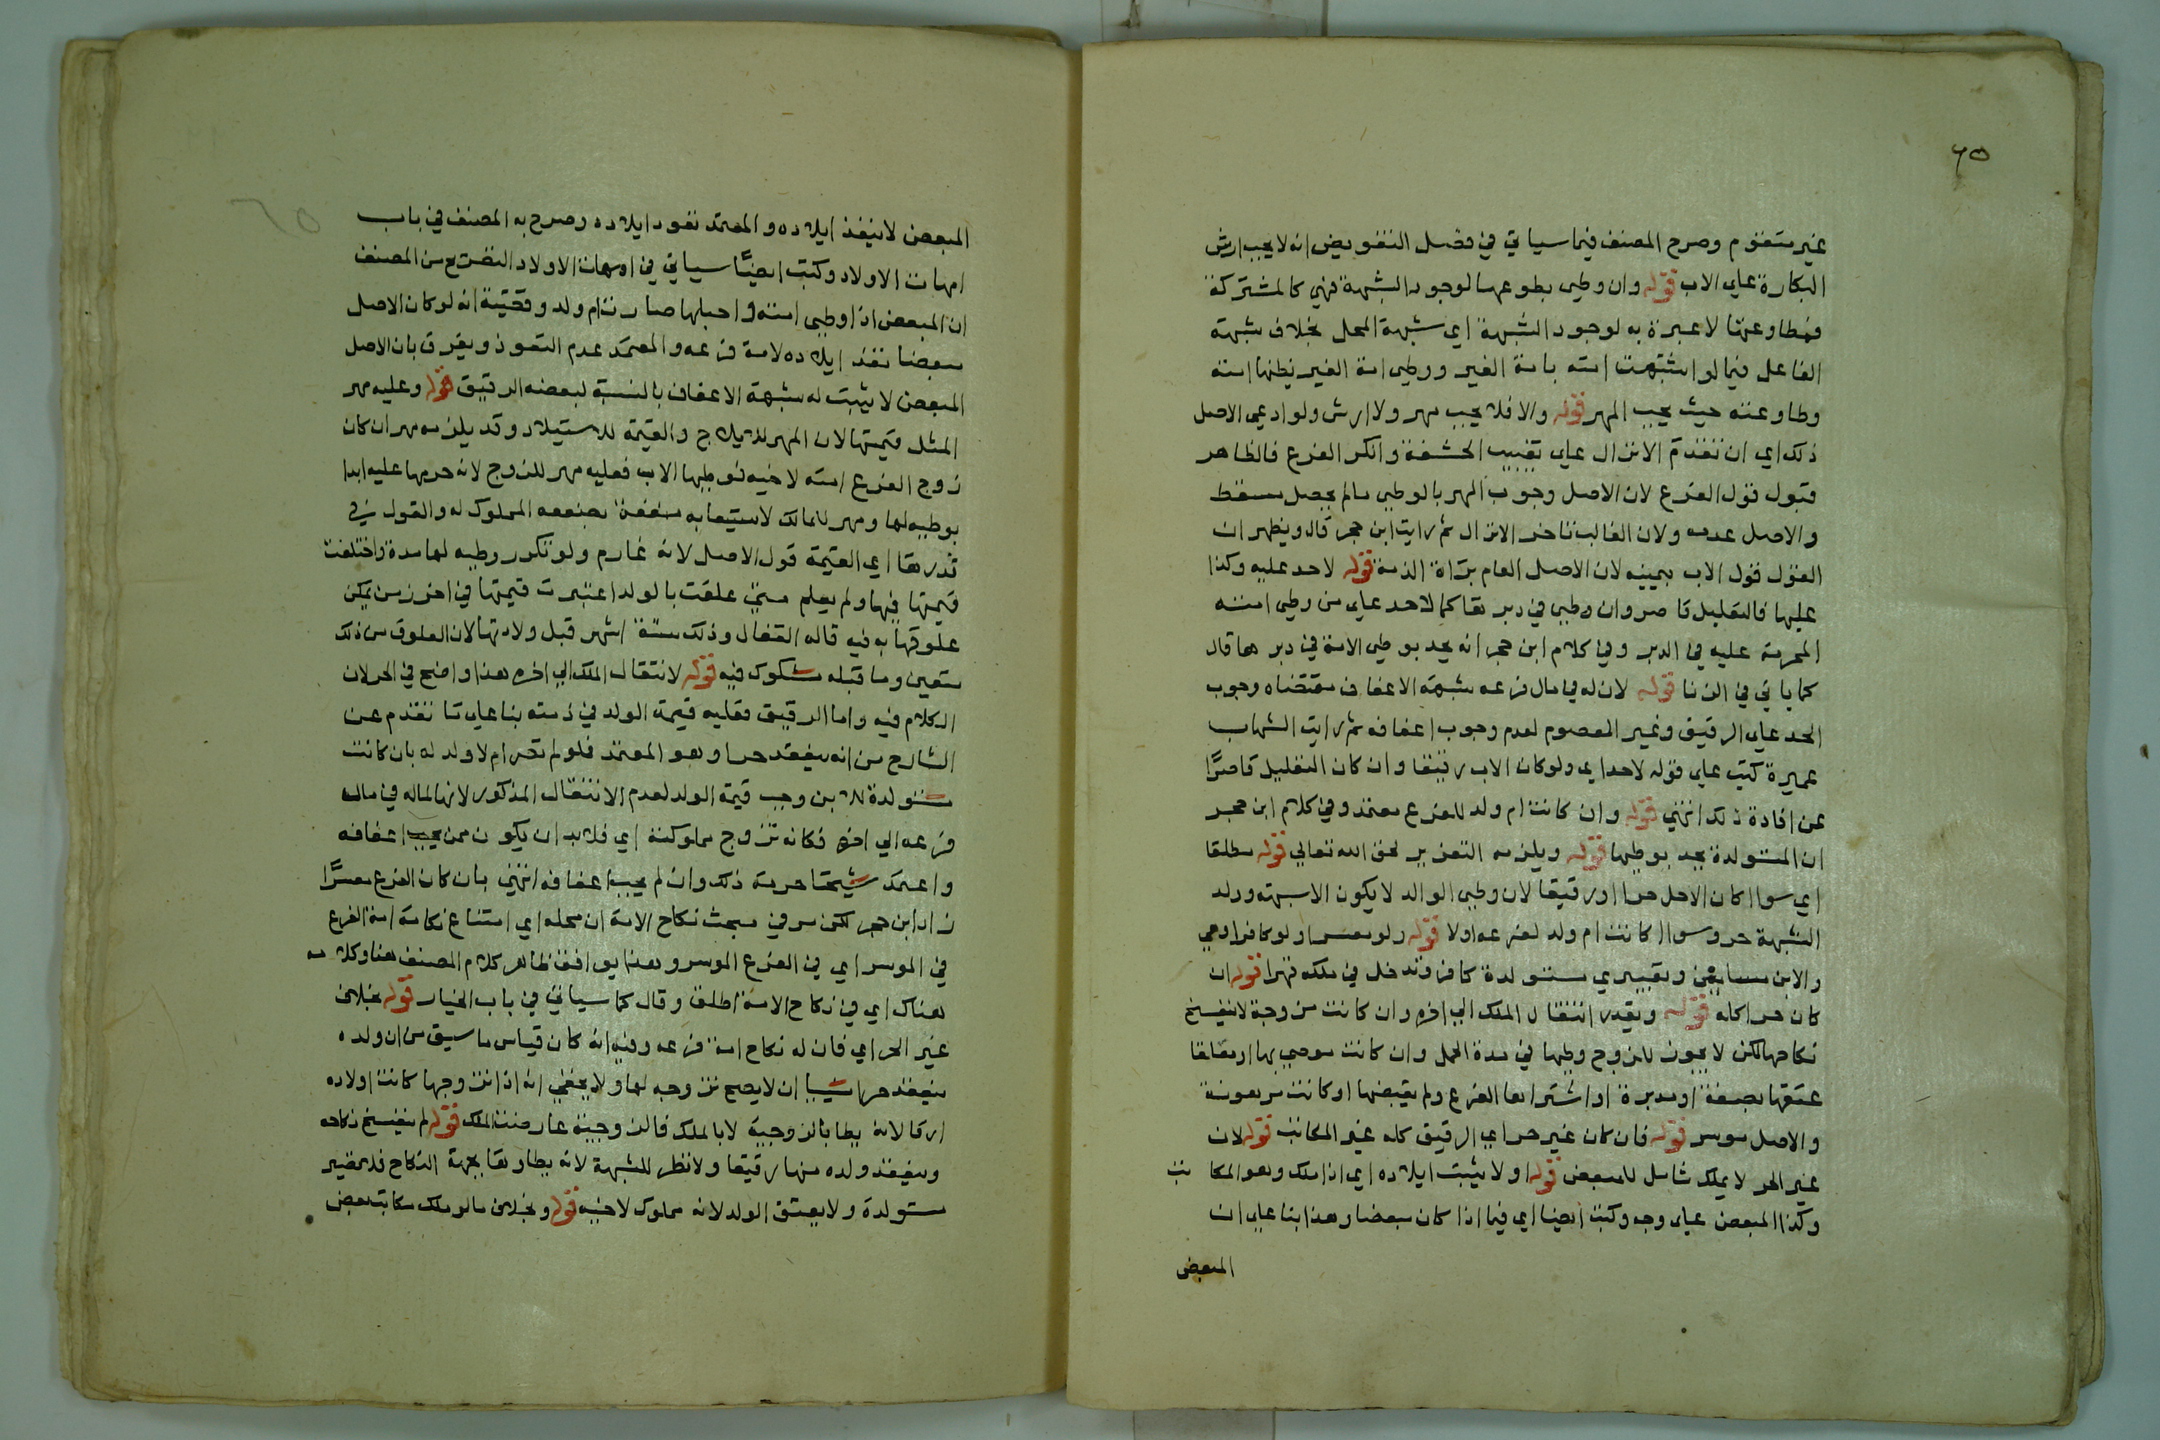 ٦٥
غير متقوم وصرح المصنف فيما سياتي في فصل التفويض انه لا يجب ارش
البكارة علي الاب قوله وان وطي بطوعها لوجود الشبهة فهي كالمشتركة
فمطاوعتها لا عبرة به لوجود الشبهة اي شبهة المحل بخلاف شبهة
الفاعل فيما لو اشتبهت امته بامة الغير ووطي امة الغير يظنها امته
وطاوعته حيث يجب المهر قوله والا فلا يجب مهر ولا ارش ولو ادعي الاصل
ذلك اي ان تقدم الانزال علي تغييب الحشفة وانكر الفرع فالظاهر
قبول قول الفرع لان الاصل وجوب المهر بالوطي ما لم يحصل مسقط
والاصل عدمه ولان الغالب تاخر الانزال ثم رايت ابن حجر قال ويظهر ان
القول قول الاب بيمينه لان الاصل العام براة الذمة قوله لا حد عليه وكذا
عليها فالتعليل قاصر وان وطي في دبرها كما لا حد علي من وطي امته
المحرمة عليه في الدبر وفي كلام ابن حجر انه يحد بوطي الامة في دبرها قال
كما ياتي في الزنا قوله لان له في مال فرعه شبهة الاعفاف مقتضاه وجوب
الحد علي الرقيق وغير المعصوم لعدم وجوب اعفافه ثم رايت الشهاب
عميرة كتب علي قوله لا حد اي ولو كان الاب رقيقا وان كان التعليل قاصرًا
عن افادة ذلك انتهي قوله وان كانت ام ولد للفرع معتمد وفي كلام ابن حجر
ان المستولدة يحد بوطيها قوله ويلزمه التعزير لحق الله تعالي قوله مطلقا
اي سوا اكان الاصل حرا او رقيقا لان وطي الوالد لا يكون الا شبهة وولد
الشبهة حر وسوا اكانت ام ولد لفرعه او لا قوله ولو معسرا ولو كافرا وهي
والابن مسلمين وتعبيري مستولدة كافر وتدخل في ملكه قهرا قوله ان
كان حرا كله قوله ويقدر انتقال الملك الي اخره وان كانت مزوجة لا ينفسخ
نكاحها لكن لا يجوز للزوج وطيها في مدة الحمل وان كانت موصي بها او معلقا
عتقها بصفة او مدبرة او اشتراها الفرع ولم يقبضها او كانت مرهونة
والاصل موسر قوله فان كان غير حر اي الرقيق كله غير المكاتب قوله لان
غير الحر لا يملك شامل للمبعض قوله او لا يثبت ايلاده اي اذا ملك وهو المكاتب
وكذا المبعض علي وجه وكتب ايضا اي فيما اذا كان مبعضا وهذا بنا علي ان
المبعض
٦٥
المبعض لا ينفذ ايلاده والمعتمد نفوذ ايلاده وصرح به المصنف في باب
امهات الاولاد وكتب ايضًا سياتي في امهات الاولاد التصريح من المصنف
ان المبعض اذا وطي امته واحبلها صارت ام ولد وقضيته انه لو كان الاصل
مبعضا نفذ ايلاده لامة فرعه والمعتمد عدم النفوذ ويفرق بان الاصل
المبعض لا يثبت له شبهة الاعفاف بالنسبة لبعضه الرقيق قوله وعليه مهر
المثل قيمتها لان المهر للايلاج والقيمة للاستيلاد وقد يلزمه مهران كان
زوج الفرع امته لاخيه فوطيها الاب فعليه مهر للزوج لانه حرمها عليه ابدا
بوطيه لها ومهر للمالك لاستيعابه منفعة بضعه المملوك له والقول في
قدرها اي القيمة قول الاصل لانه غارم ولو تكرر وطيه لها مدة واختلفت
قيمتها فيها ولم يعلم متي علقت بالولد اعتبرت قيمتها في اخر زمن يمكن
علوقها به فيه قاله القفال وذلك ستة اشهر قبل ولادتها لان العلوق من ذلك
متعين وما قبله مشكوك فيه قوله لانتقال الملك الي اخره هذا واضح في الحر لان
الكلام فيه واما الرقيق فعليه قيمة الولد في ذمته بنا علي ما تقدم عن
الشارح من انه ينعقد حرا وهو المعتمد فلو لم تصر ام ولد له بان كانت
مستولدة للابن وجب قيمة الولد لعدم الانتقال المذكور لانها لماله في مال
فرعه الي اخره فكانه تزوج مملوكته اي فلابد ان يكون ممن يجب اعفافه
واعتمد شيخنا حرمة ذلك وان لم يجب اعفافه انتهي بان كان الفرع معسرًا
زاد ابن حجر لكن مر في مبحث نكاح الامة ان محله اي امتناع نكاحه امة الفرع
في الموسر اي في الفرع الموسر وهذا يوافق ظاهر كلام المصنف هنا وكلامه
هناك اي في نكاح الامة اطلق وقال كما سياتي في باب الخيار قوله بخلاف
غير الحر اي فان له نكاح امة فرعه وفيه انه كان قياس ما سبق من ان ولده
ينعقد حرا نسيبا ان لا يصح تزوجه لها ولا يخفي انه اذا تزوجها كانت اولاده
ارقا لانه يطا بالزوجية لا بالملك فالزوجية عارضت الملك قوله لم ينفسخ نكاحه
وينعقد ولده منها رقيقا ولا نظر للشبهة لانه يطاوها بجهة النكاح فلا تصير
مستولدة ولا يعتق الولد لانه مملوك لاخيه قوله وبخلاف ما لو ملك مكاتب بعض